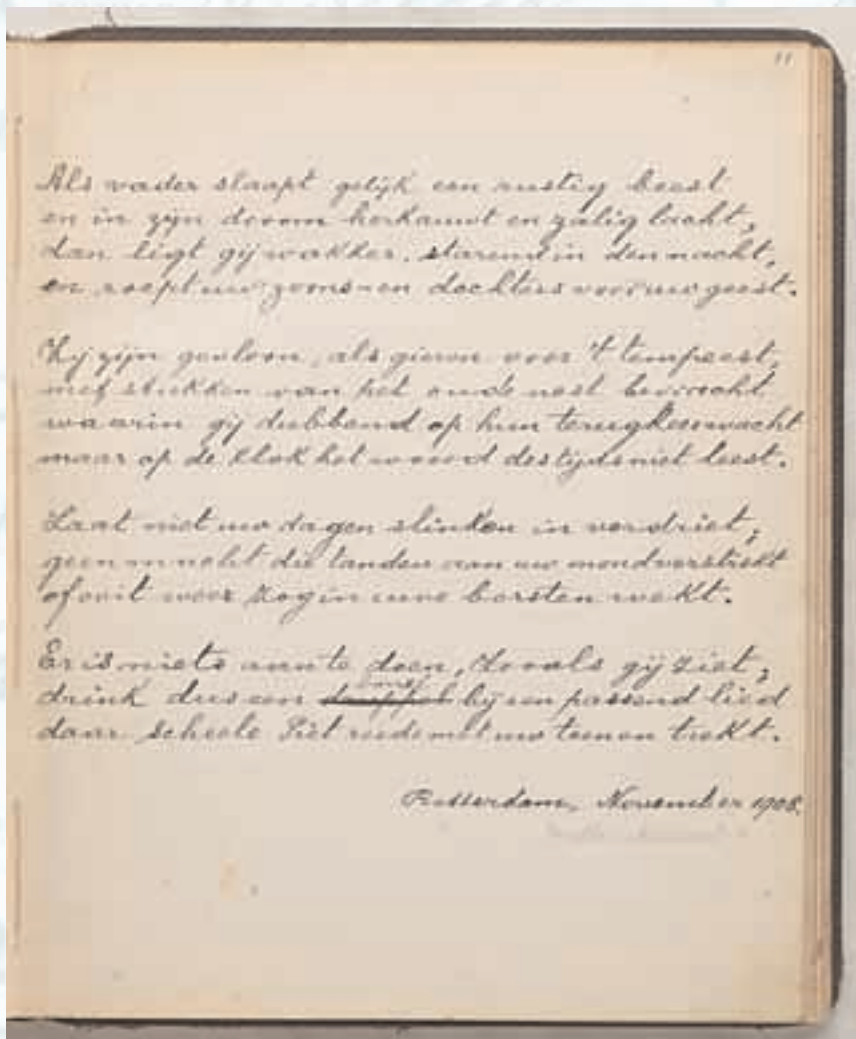 11
Als vader slaapt gelijk een rustig beest
en in zijn droom herkauwt en zalig lacht,
dan ligt gij wakker, starend in den nacht,
en roept uw zoons en dochters voor uw geest.
Zij zijn gevloon, als gieren voor 't tempeest,
met stukken van het oude nest bevracht
waarin gij dubbend op hun terugkeer wacht
maar op de klok het woord des tijds niet leest.
Laat niet uw dagen slinken in verdriet;
geen macht die tanden aan uw mond verstrekt
of ooit weer zog in uwe borsten wekt.
Er is niets aan te doen, zooals gij ziet;
drink dus een bij een passend lied
daar scheele Piet reeds met uw teenen trekt.
Rotterdam, November 1908.